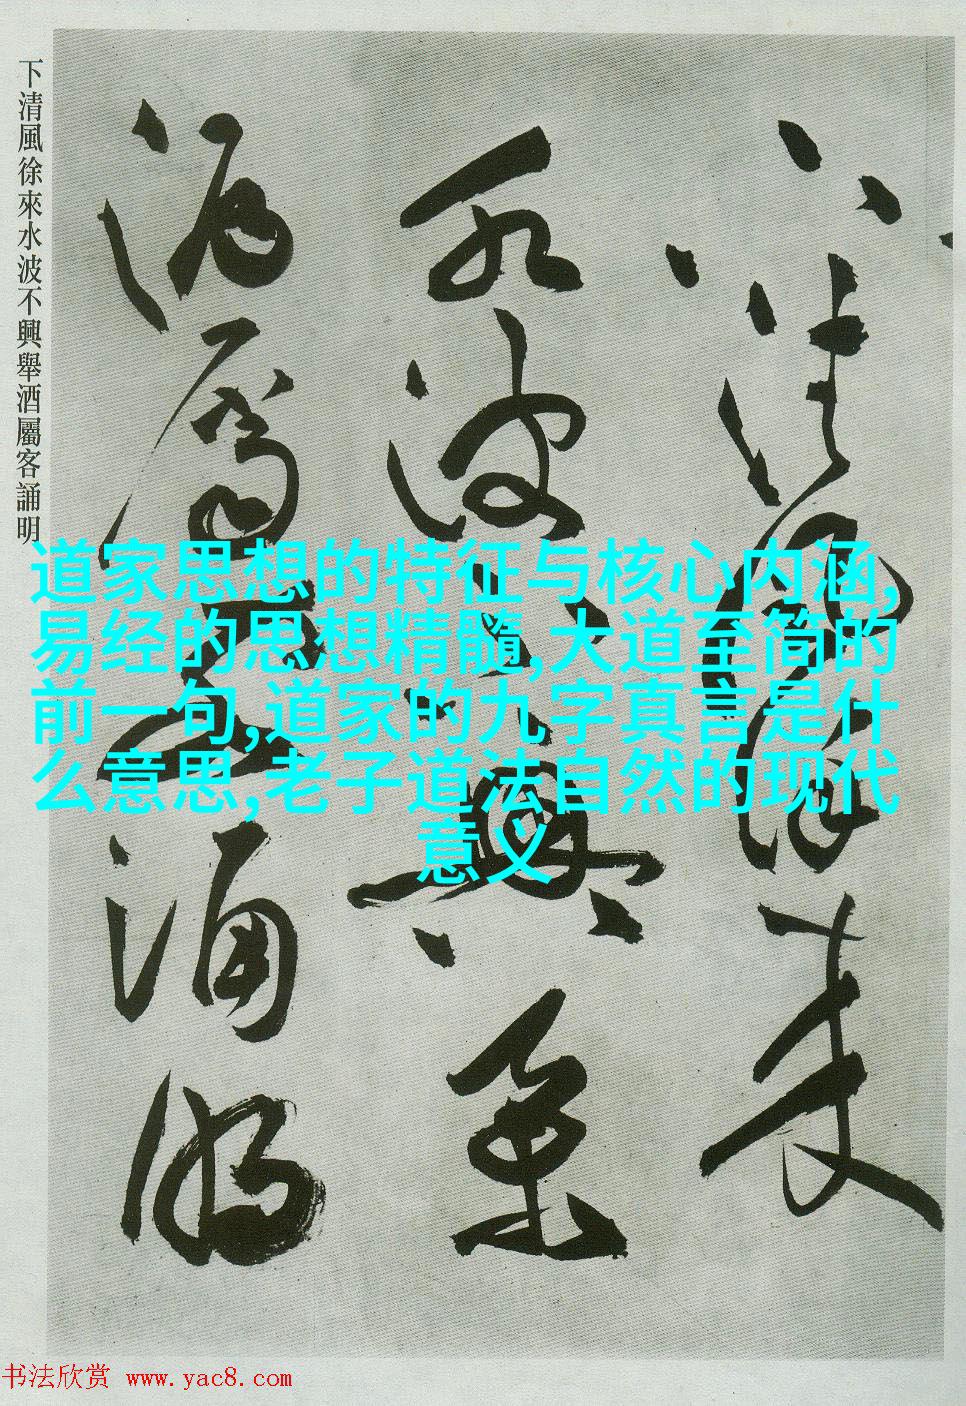 下清風徐來
水波不興舉
酒屬客誦明
下清風徐來水波不興舉酒屬客誦明
道家思想的特征与核心内涵,
易经的思想精髓,大道至简的
前一句,道家的九字真言是什
么意思,老子道法自然的现代
意义
书法欣赏 www.yac8.com